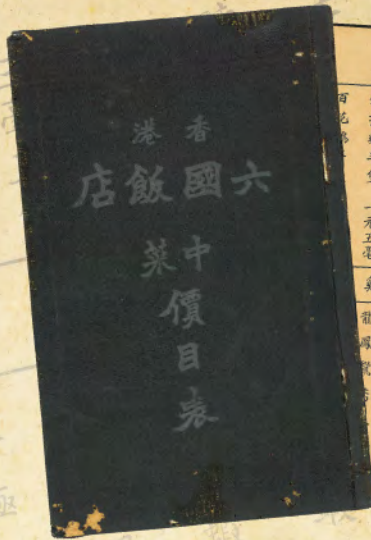 香港
六國飯店
中菜
價目表